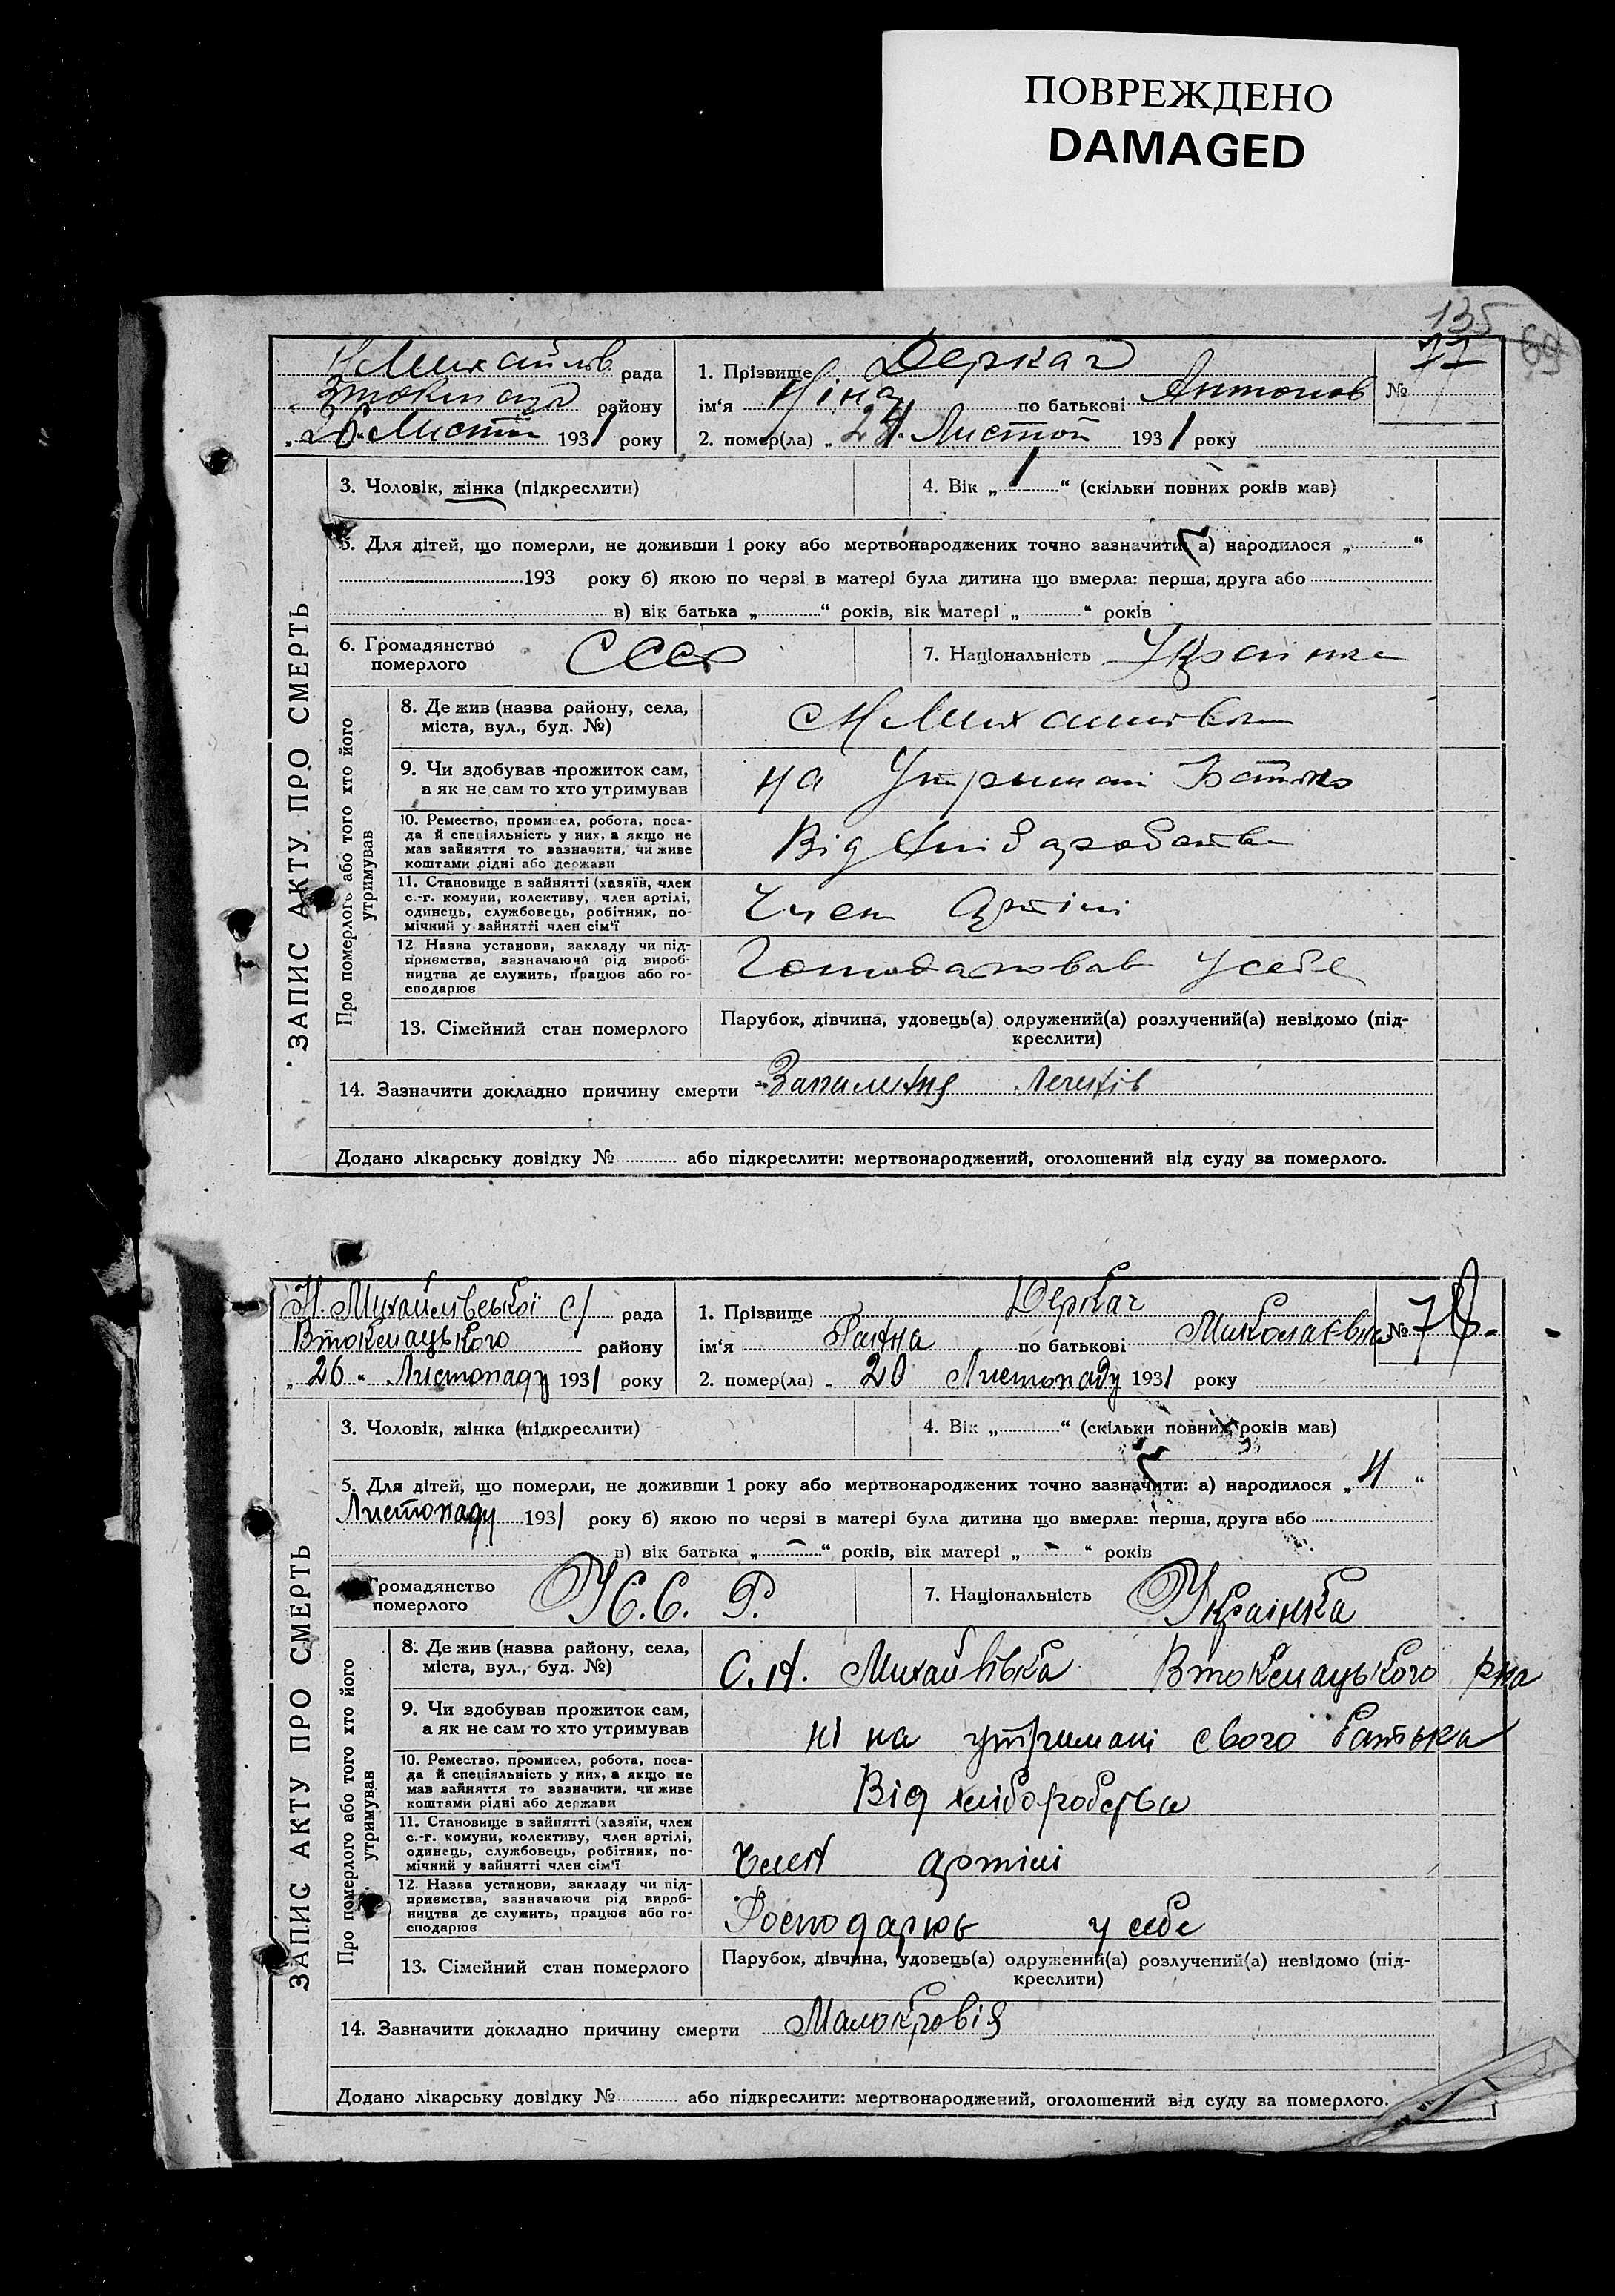 ПОВРЕЖДЕНО
DAMAGED
135
69
Н Михайлів рада
Втокмаць району
„26“ Листоп 1931 року
1. Прізвище Деркач
ім'я Ніна по батькові Антонов
№ 77
2. помер(ла) „24“ Листоп 1931 року
ЗАПИС АКТУ ПРО СМЕРТЬ
3. Чоловік, жінка (підкреслити)
4. Вік „1“ (скільки повних років мав)
5. Для дітей, що померли, не доживши 1 року або мертвонароджених точно зазначити: а) народилося „ “
193 року б) якою по черзі в матері була дитина що вмерла: перша, друга або
в) вік батька „ “ років, вік матері „ “ років
6. Громадянство
померлого
СССР
7. Національність Українка
Про померлого або того хто його
утримував
8. Де жив (назва району, села,
міста, вул., буд. №)
с Н Михайлівка
9. Чи здобував прожиток сам,
а як не сам то хто утримував
на Утримані Батько
10. Ремество, промисел, робота, поса-
да й спеціяльність у них, а якщо не
мав зайняття то зазначити, чи живе
коштами рідні або держави
Від хліборобства
11. Становище в зайнятті (хазяїн, член
с.-г. комуни, колективу, член артілі,
одинець, службовець, робітник, по-
мічний у зайнятті член сім'ї
Член Артілі
12. Назва установи, закладу чи під-
приємства, зазначаючи рід вироб-
ництва де служить, працює або го-
сподарює
Господарював У себе
13. Сімейний стан померлого
Парубок, дівчина, удовець(а) одружений(а) розлучений(а) невідомо (під-
креслити)
14. Зазначити докладно причину смерти Запалення Легенів
Додано лікарську довідку № або підкреслити: мертвонароджений, оголошений від суду за померлого.
Н. Михайлівської с/ рада
Втокмацького району
„26“ Листопаду 1931 року
1. Прізвище Деркач
ім'я Ганна по батькові Миколаєвна
№ 78.
2. помер(ла) „20 Листопаду 1931 року
ЗАПИС АКТУ ПРО СМЕРТЬ
3. Чоловік, жінка (підкреслити)
4. Вік „ “ (скільки повних років мав)
5. Для дітей, що померли, не доживши 1 року або мертвонароджених точно зазначити: а) народилося „4“
Листопаду 1931 року б) якою по черзі в матері була дитина що вмерла: перша, друга або
в) вік батька „-“ років, вік матері „-“ років
Громадянство
померлого
У.С.С.Р.
7. Національність Українка
Про померлого або того хто його
утримував
8. Де жив (назва району, села,
міста, вул., буд. №)
С. Н. Михайлівка Втокмацького р-на
9. Чи здобував прожиток сам,
а як не сам то хто утримував
Ні на утримані свого батька
10. Ремество, промисел, робота, поса-
да й спеціяльність у них, а якщо не
мав зайняття то зазначити, чи живе
коштами рідні або держави
Від хліборобства
11. Становище в зайнятті (хазяїн, член
с.-г. комуни, колективу, член артілі,
одинець, службовець, робітник, по-
мічний у зайнятті член сім'ї
Член артілі
12. Назва установи, закладу чи під-
приємства, зазначаючи рід вироб-
ництва де служить, працює або го-
сподарює
Господарює у себе
13. Сімейний стан померлого
Парубок, дівчина, удовець(а) одружений(а) розлучений(а) невідомо (під-
креслити)
14. Зазначити докладно причину смерти Малокровія
Додано лікарську довідку № або підкреслити: мертвонароджений, оголошений від суду за померлого.